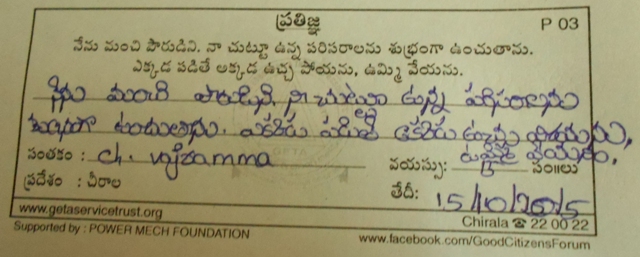 ప్రతిజ్ఞ
P 03
నేను మంచి పౌరుడిని. నా చుట్టూ ఉన్న పరిసరాలను శుభ్రంగా ఉంచుతాను.
ఎక్కడ పడితే అక్కడ ఉచ్చ పోయను, ఉమ్మి వేయను.
నేను మంచి పౌరుడిని. నా చుట్టూ ఉన్న పరిసరాలను
శుభ్రంగా ఉంచుతాను. ఎక్కడ పడితే అక్కడ ఉచ్చ పోయను,
ఉమ్మి వేయను.
సంతకం : ch. vajramma వయస్సు: 13 సం॥లు
ప్రదేశం : చీరాల తేదీ: 15/10/2015
www.getaservicetrust.org Chirala ☎ 22 00 22
Supported by : POWER MECH FOUNDATION www.facebook.com/GoodCitizensForum